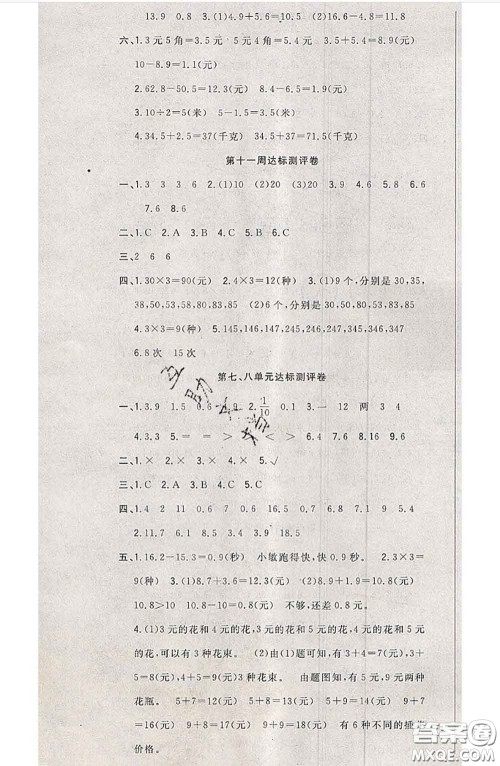 13.9　0.8　3.(1)4.9+5.6=10.5　(2)16.6-4.8=11.8
六、1.3元5角=3.5元　5元4角=5.4元　3.5+5.4=8.9(元)
10-8.9=1.1(元)
2.62.8-50.5=12.3(元)　8.4-6.5=1.9(元)
3.10÷2=5(米)　5-1.5=3.5(米)
4.34.5+2.5=37(千克)　34.5+37=71.5(千克)
第十一周达标测评卷
一、1.3　3　3　6　2.(1)10　(2)20　(3)20　3.9　4.6　5.6　6.6
7.6　8.6
二、1.C　2.A　3.B　4.B　5.C　6.C
三、2　6　6
四、1.30×3=90(元)　2.4×3=12(种)　3.(1)6个,分别是30,35,
38,50,53,58,80,83,85　(2)6个,分别是30,50,53,80,83,85
4.3×3=9(种)　5.145,146,147,245,246,247,345,346,347
6.8次　15次
第七、八单元达标测评卷
一、1.3.9　1.5　0.6　4.9　2.1/10　0.1　3.一　12　两　3　4
4.3.3　5.=　=　>　<　>　6.4　7.6　8.16　9.6
二、1.×　2.×　3.×　4.×　5.√
三、1.C　2.A　3.B　4.C　5.C
四、1.4　2　11　0.7　2.5　0.6　1.8　7.1　9　0.4
2.11.7　6.1　3.9　18.5
五、1.16.2-15.3=0.9(秒)　小敏跑得快,快0.9秒。　2.3×3=
9(种)　3.(1)8.7+3.6=12.3(元)　(2)1.8+9=10.8(元)
10.8>10　10.8-10=0.8(元)　不够,还差0.8元。
4.(1)3元的花和4元的花,3元的花和5元的花,4元的花和5元的
花,可以有3种花束。　(2)由(1)题可知,有3+4=7(元),3+5=
8(元),4+5=9(元)3种花束。　由题图知,有9元、8元两种
花瓶。　9+7=16(元)　9+8=17(元)　9+9=18(元)　9+7
=16(元)　9+8=17(元)　9+9=18(元)　有6种不同的插花
价格。
答案圈
MXQE.COM